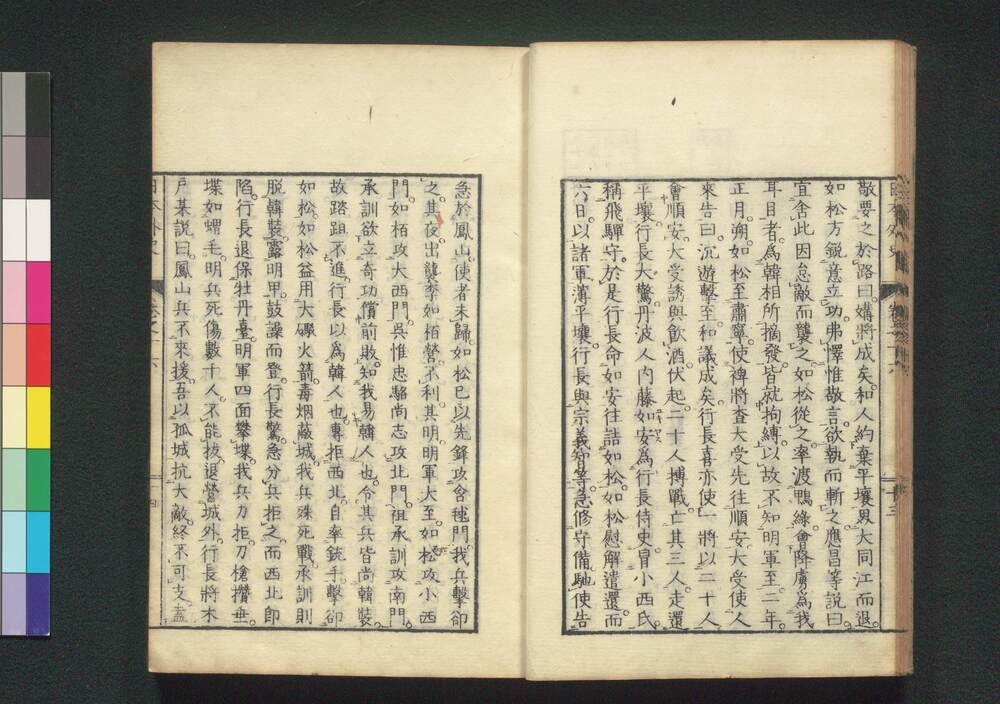 敬要之於路曰媾將成矣和人約棄平壤界大同江而退
如松方鋭意立功弗懌惟敬言欲執而斬之應昌等説曰
宜舍此因怠敵而襲之如松從之率渡鴨綠會降虜爲我
耳目者爲韓相所摘發皆就拘縛以故不知明軍至二年
正月朔如松至肅寧使裨將査大受先往順安大受使人
來告曰沈遊擊至和議成矣行長喜亦使一將以二十人
會順安大受誘與飮酒伏起二十人搏戰亡其三人走還
平壤行長大驚丹波人内藤如安爲行長侍史冒小西氏
稱飛彈守於是行長命如安往詰如松如松慰解遣還而
六日以諸軍薄平壤行長與宗義智等急修守備馳使告
急於鳳山使者未歸如松已以先鋒攻含毬門我兵擊卻
之其夜出襲李如栢營不利其明明軍大至如松攻小西
門如栢攻大西門吳惟忠駱尚志攻北門祖承訓攻南門
承訓欲立奇功償前敗知我易韓人也令其兵皆尚韓裝
故踏跙不進行長以爲韓人也專拒西北自率銃手擊卻
如松如松益用大礮火箭毒烟蔽城我兵殊死戰承訓則
脱韓裝露明甲鼓譟而登行長驚急分兵拒之而西北即
陷行長退保牡丹臺明軍四面攀堞我兵力拒刀槍攢垂
堞如蝟毛明兵死傷數千人不能拔退營城外行長將木
戸某説曰鳳山兵不來援吾以孤城抗大敵終不可支盍